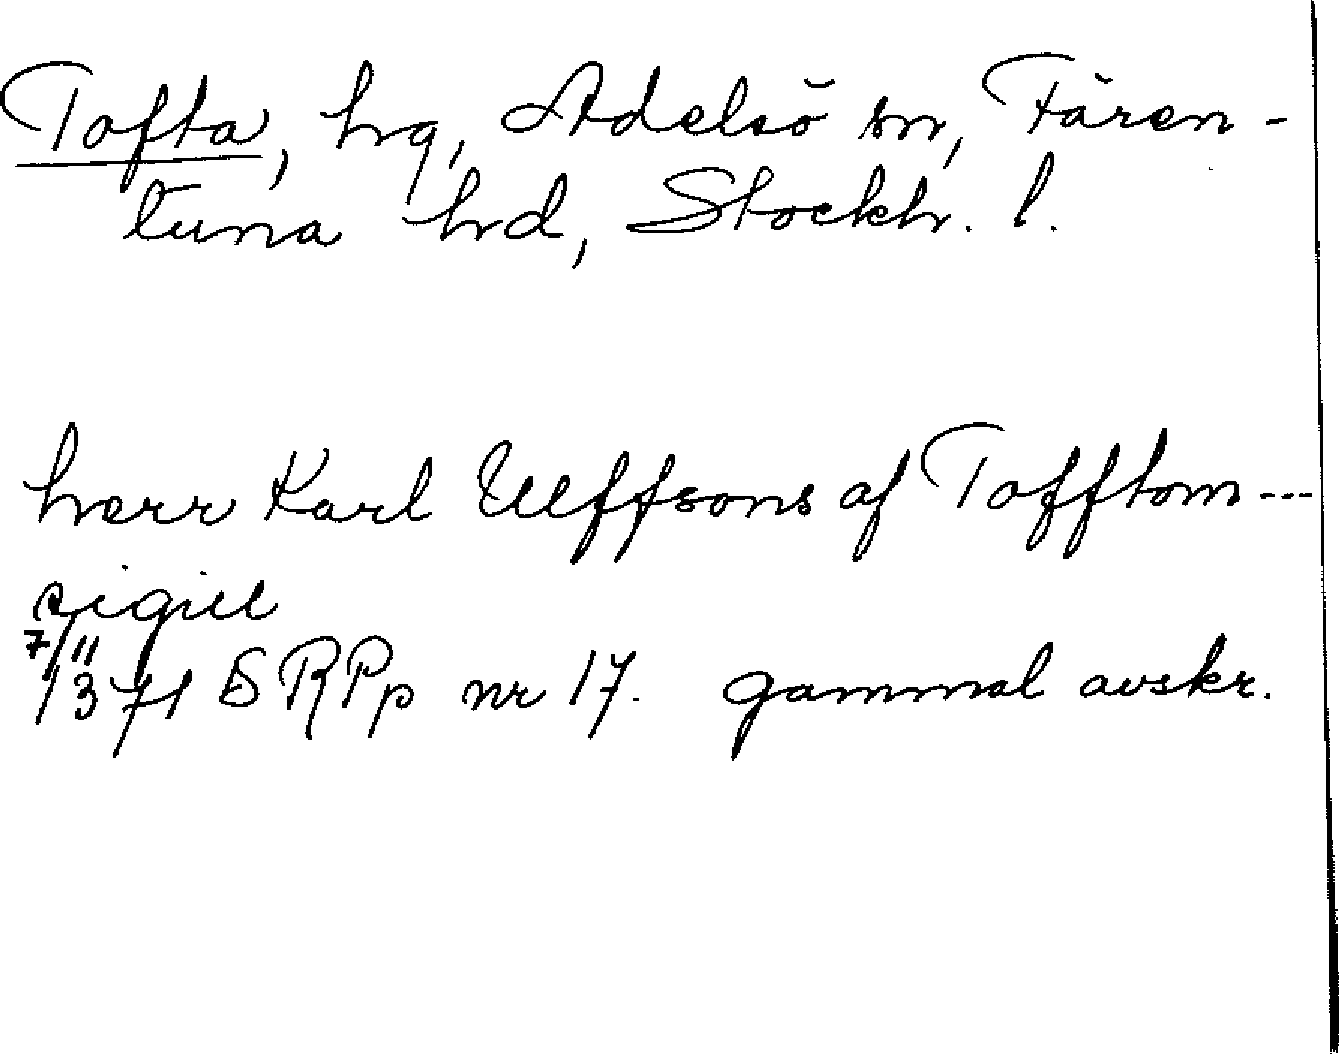 Tofta, hg, Adelsö sn, Fären-
tuna hd, Stockh. l.
herr Karl Ulffsons af Tofftom ---
sigill
7/11
1371 SRPp nr 17. gammal avskr.